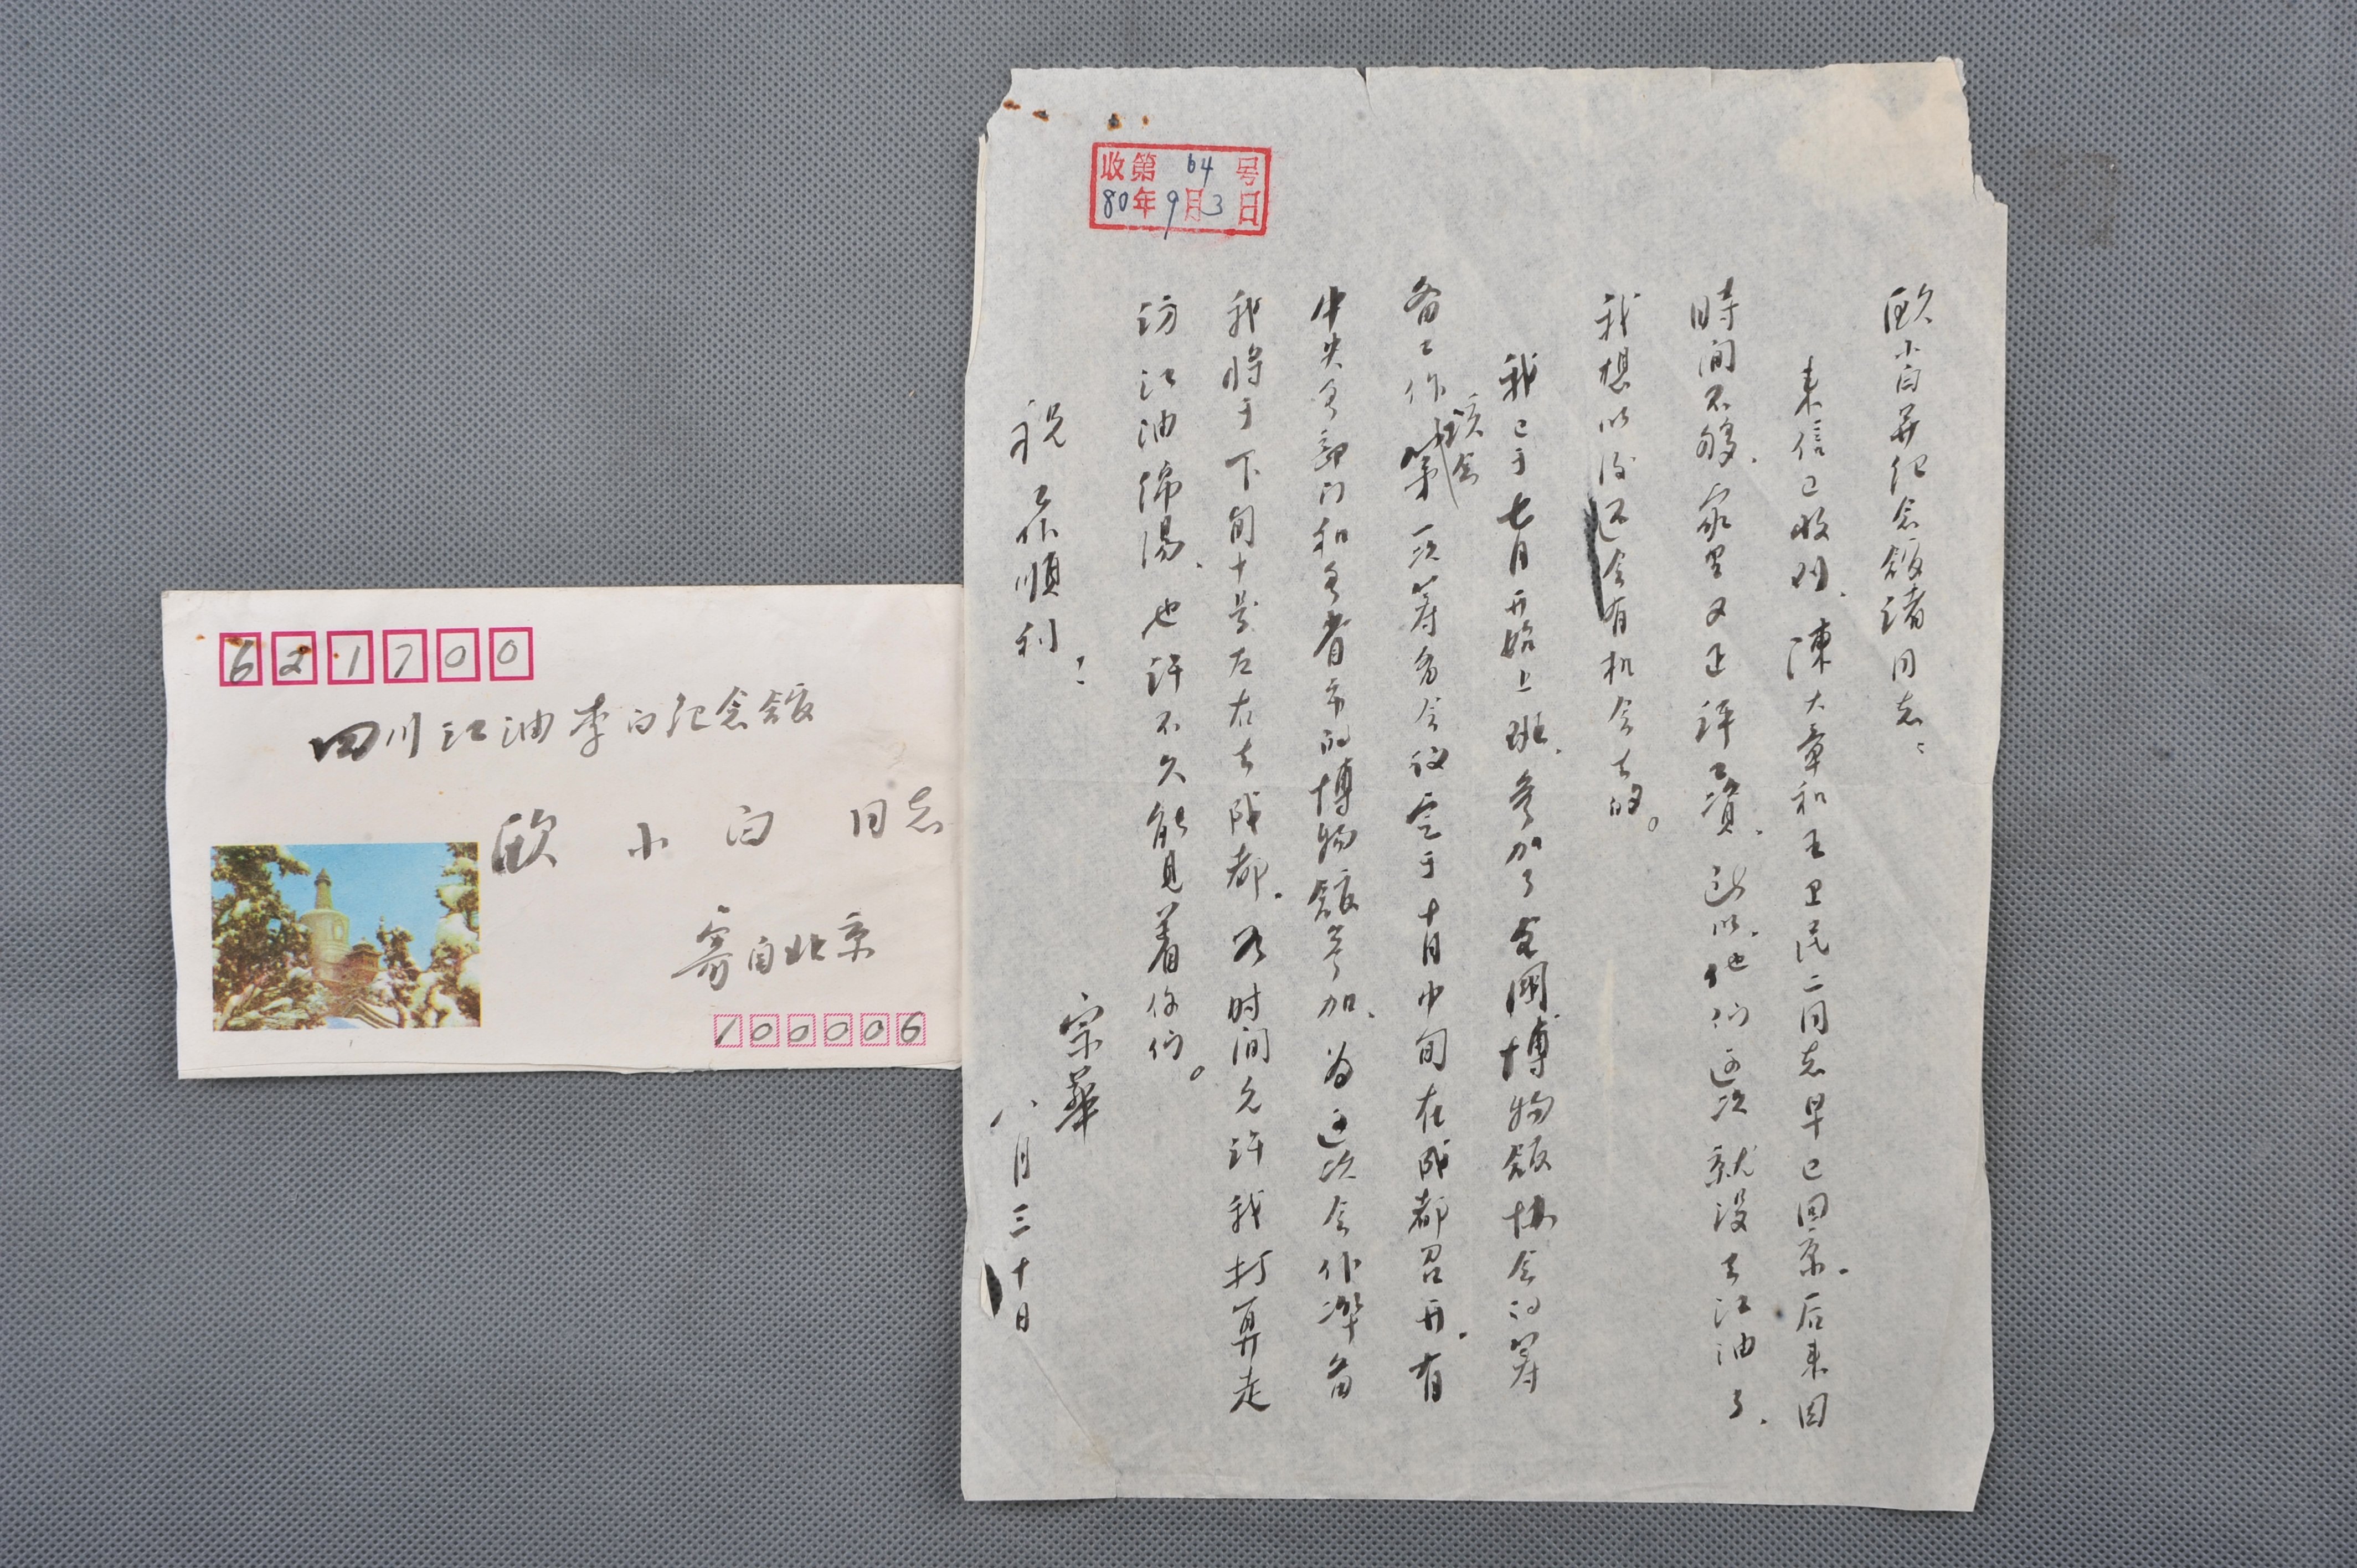 621700
四川江油李白纪念馆
欧小白同志
寄自北京
100006
收第64号
80年9月3日
欧小白并纪念馆诸同志：
来信已收到，陳大章和王卫民二同志早已回京。后来因
時间不够，家里又正评工资，所以，他们这次就没去江油了，
我想以后还会有机会去的。
我已于七月开始上班，参加了全國博物馆协会的筹
备工作，该会第一次筹备会议定于十月中旬在成都召开，有
中央各部门和各省市的博物馆参加，为这次会作準备
我将于下旬十号左右去成都，如时间允许我打算走
访江油绵陽，也许不久能見着你们。
祝工作順利！
宗華
八月三十日